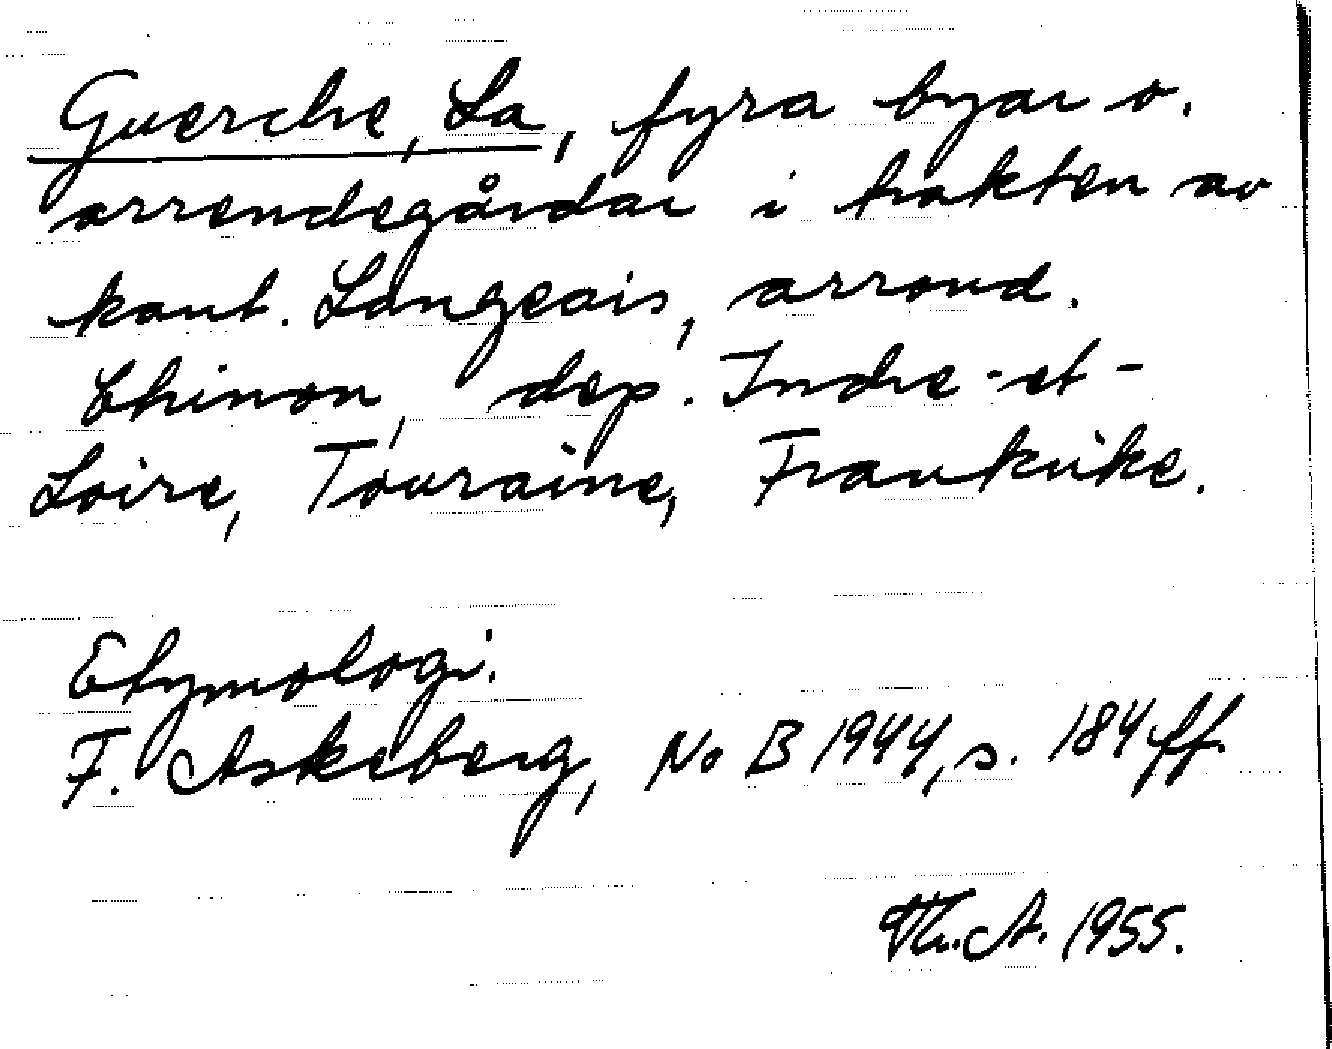 Guerche, La, fyra byar o.
arrendegårdar i trakten av
kant. Langeais, arrond.
Chinon, dep. Indre-et-
Loire, Touraine, Frankrike.
Etymologi.
F. Askeberg, No B 1944, s. 184 ff.
Th. A. 1955.